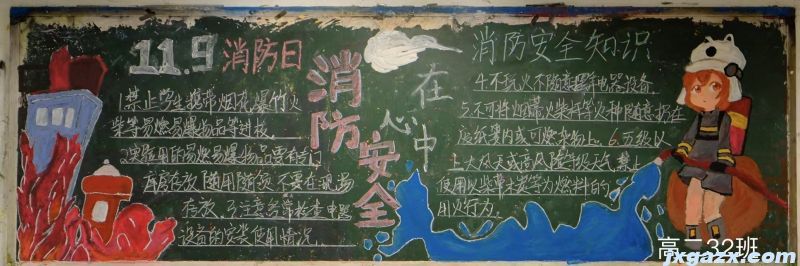 11.9 消防日
消防安全
在心中
1.禁止学生携带烟花爆竹火
柴等易燃易爆物品等进校。
2.实验用的易燃易爆物品要有专门
库房存放,随用随领,不要在现场
存放。3.注意经常检查电器
设备的安装使用情况。
消防安全知识
4.不玩火不随意摆弄电器设备。
5.不可将烟蒂火柴等火种随意扔在
废纸篓内或可燃杂物上。6.五级以
上大风天或高风险等级天气,禁止
使用以柴草木炭等为燃料的
用火行为。
高二32班
jxgazx.com